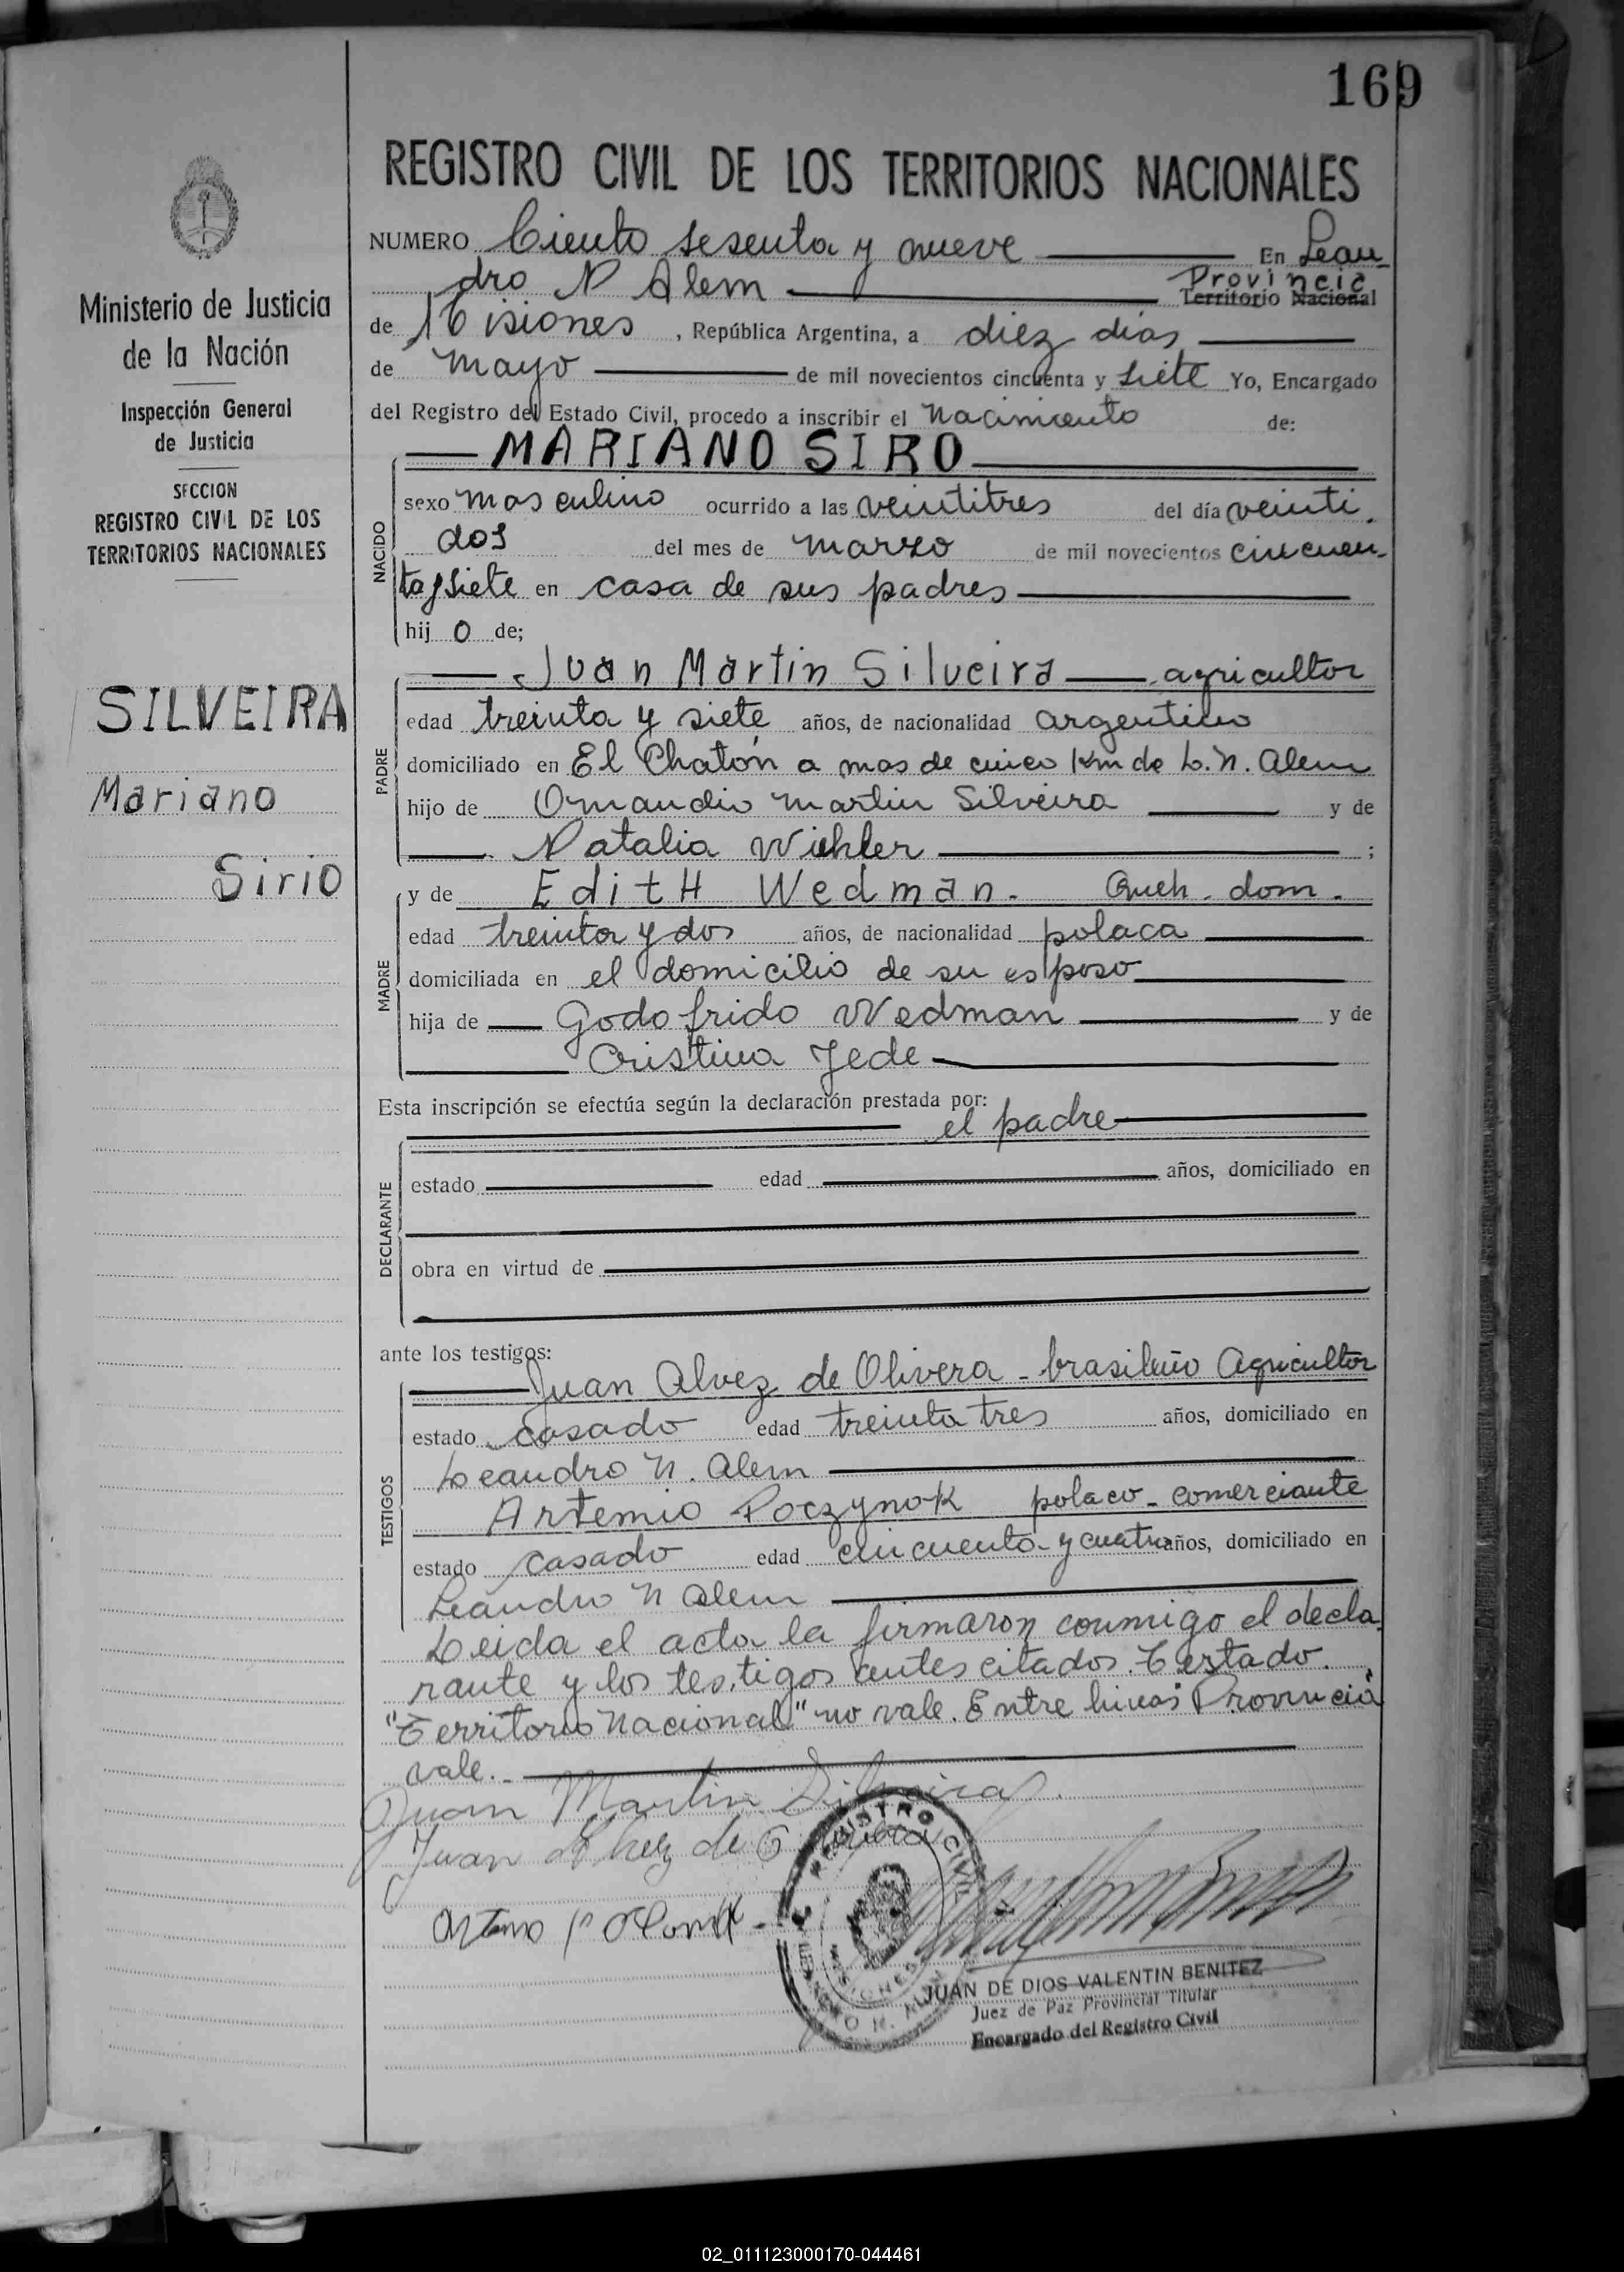 169
REGISTRO CIVIL DE LOS TERRITORIOS NACIONALES
Ministerio de Justicia
de la Nación
Inspección General
de Justicia
SECCION
REGISTRO CIVIL DE LOS
TERRITORIOS NACIONALES
SILVEIRA
Mariano
Sirio
NUMERO Ciento sesenta y nueve En Lean-
dro N Alem Provincia
Territorio Nacional
de Misiones, República Argentina, a diez días
de mayo de mil novecientos cincuenta y siete Yo, Encargado
del Registro del Estado Civil, procedo a inscribir el nacimiento de:
MARIANO SIRO
NACIDO
sexo masculino ocurrido a las veintitres del día veinti
dos del mes de marzo de mil novecientos cincuen-
ta y siete en casa de sus padres
hij o de;
Juan Martin Silveira agricultor
PADRE
edad treinta y siete años, de nacionalidad argentino
domiciliado en El Chatón a mas de cinco Km de L. N. Alem
hijo de Omandio Martin Silveira y de
Natalia Wichler ;
y de EditH Wedman. Queh. dom.
MADRE
edad treinta y dos años, de nacionalidad polaca
domiciliada en el domicilio de su esposo
hija de Godofrido Wedman y de
Cristina Jede
Esta inscripción se efectúa según la declaración prestada por:
el padre
DECLARANTE
estado edad años, domiciliado en
obra en virtud de
ante los testigos:
Juan Alvez de Olivera - brasileño Agricultor
TESTIGOS
estado casado edad treinta tres años, domiciliado en
Leandro N. Alem
Artemio Poczynok polaco - comerciante
estado casado edad cincuenta y cuatro años, domiciliado en
Leandro N Alem
Leida el acta la firmaron conmigo el decla-
rante y los testigos antes citados. Testado
"Territorio Nacional" no vale. Entre lineas "Provincia"
vale.
Juan Martin Silveira
Juan Alvez de Olivera
REGISTRO CIVIL
MISIONES
JUAN DE DIOS VALENTIN BENITEZ
Juez de Paz Provincial Titular
Encargado del Registro Civil
02_011123000170-044461